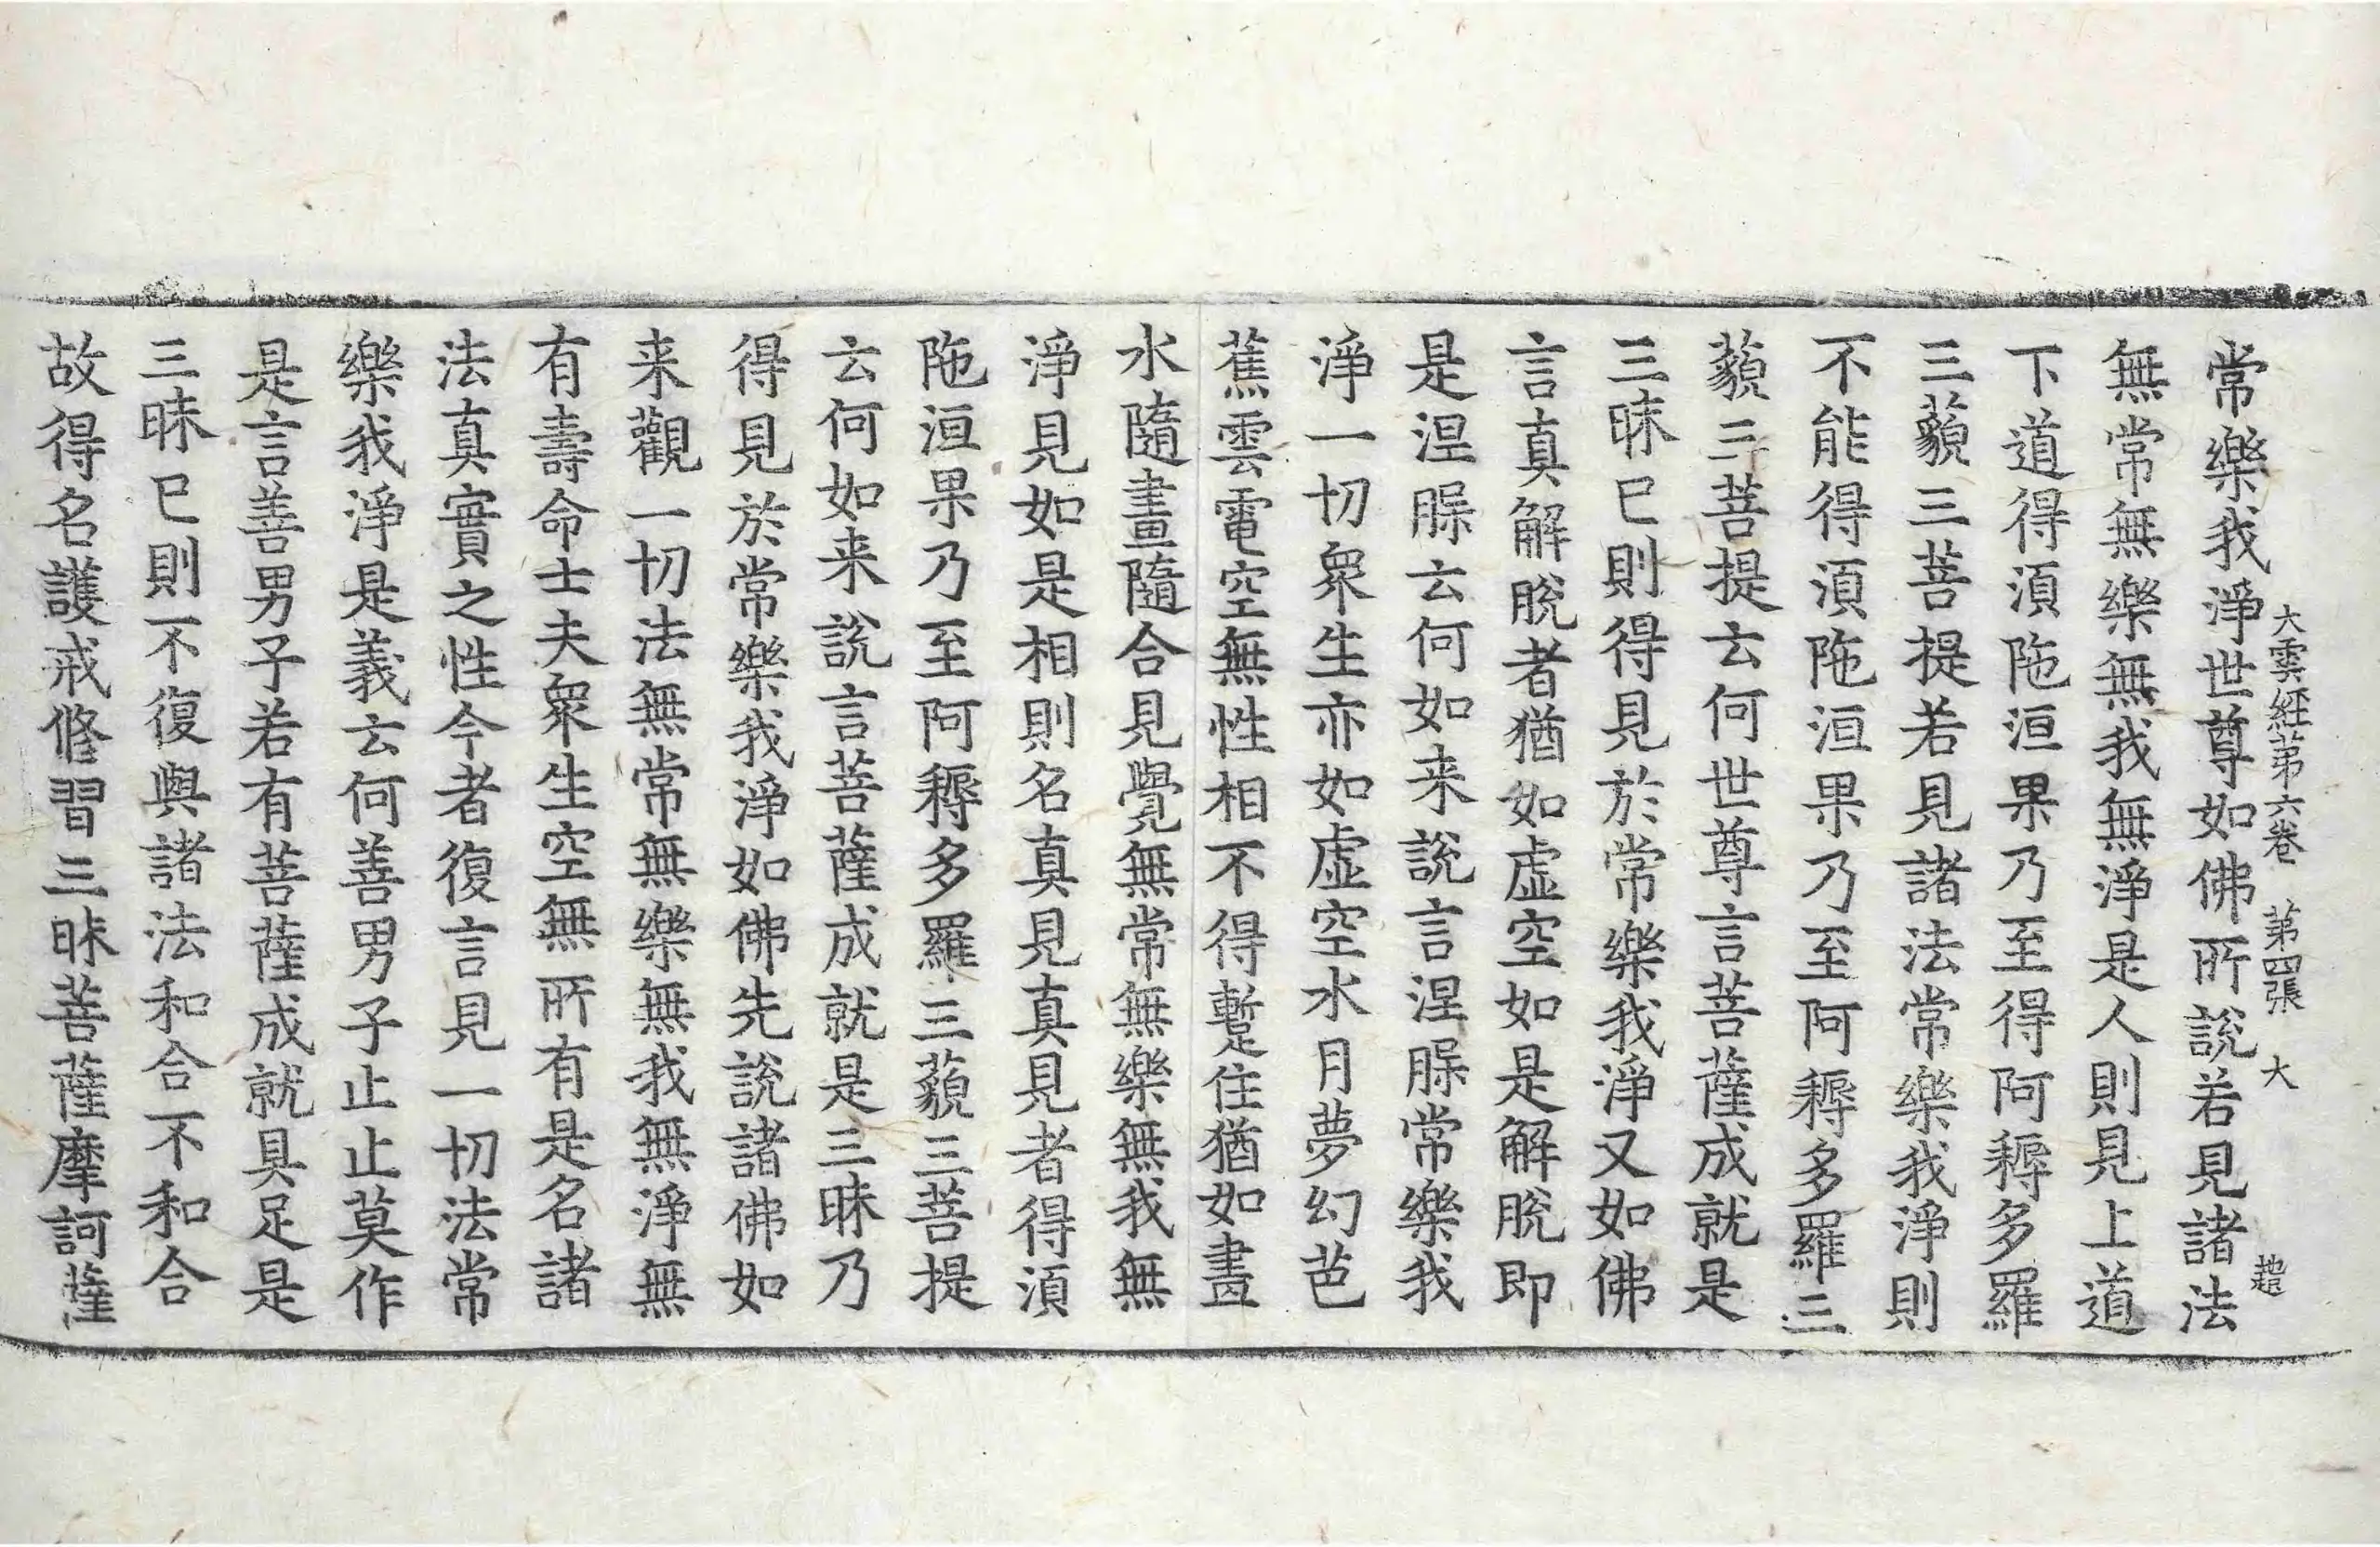 大雲經苐六卷 苐四張 大 趙
常樂我淨世尊如佛所說若見諸法
無常無樂無我無淨是人則見上道
下道得湏陁洹果乃至得阿耨多羅
三藐三菩提若見諸法常樂我淨則
不能得湏陁洹果乃至阿耨多羅三
藐三菩提云何世尊言菩薩成就是
三昧已則得見於常樂我淨又如佛
言真解脫者猶如虛空如是解脫即
是涅縣云何如来說言涅縣常樂我
淨一切衆生亦如虛空水月夢幻芭
蕉雲電空無性相不得蹔住猶如畫
水隨畫隨合見覺無常無樂無我無
淨見如是相則名真見真見者得湏
陁洹果乃至阿耨多羅三藐三菩提
云何如来說言菩薩成就是三昧乃
得見於常樂我淨如佛先說諸佛如
来觀一切法無常無樂無我無淨無
有壽命士夫衆生空無所有是名諸
法真實之性今者復言見一切法常
樂我淨是義云何善男子止止莫作
是言善男子若有菩薩成就具足是
三昧已則不復與諸法和合不和合
故得名護戒脩習三昧菩薩摩訶薩